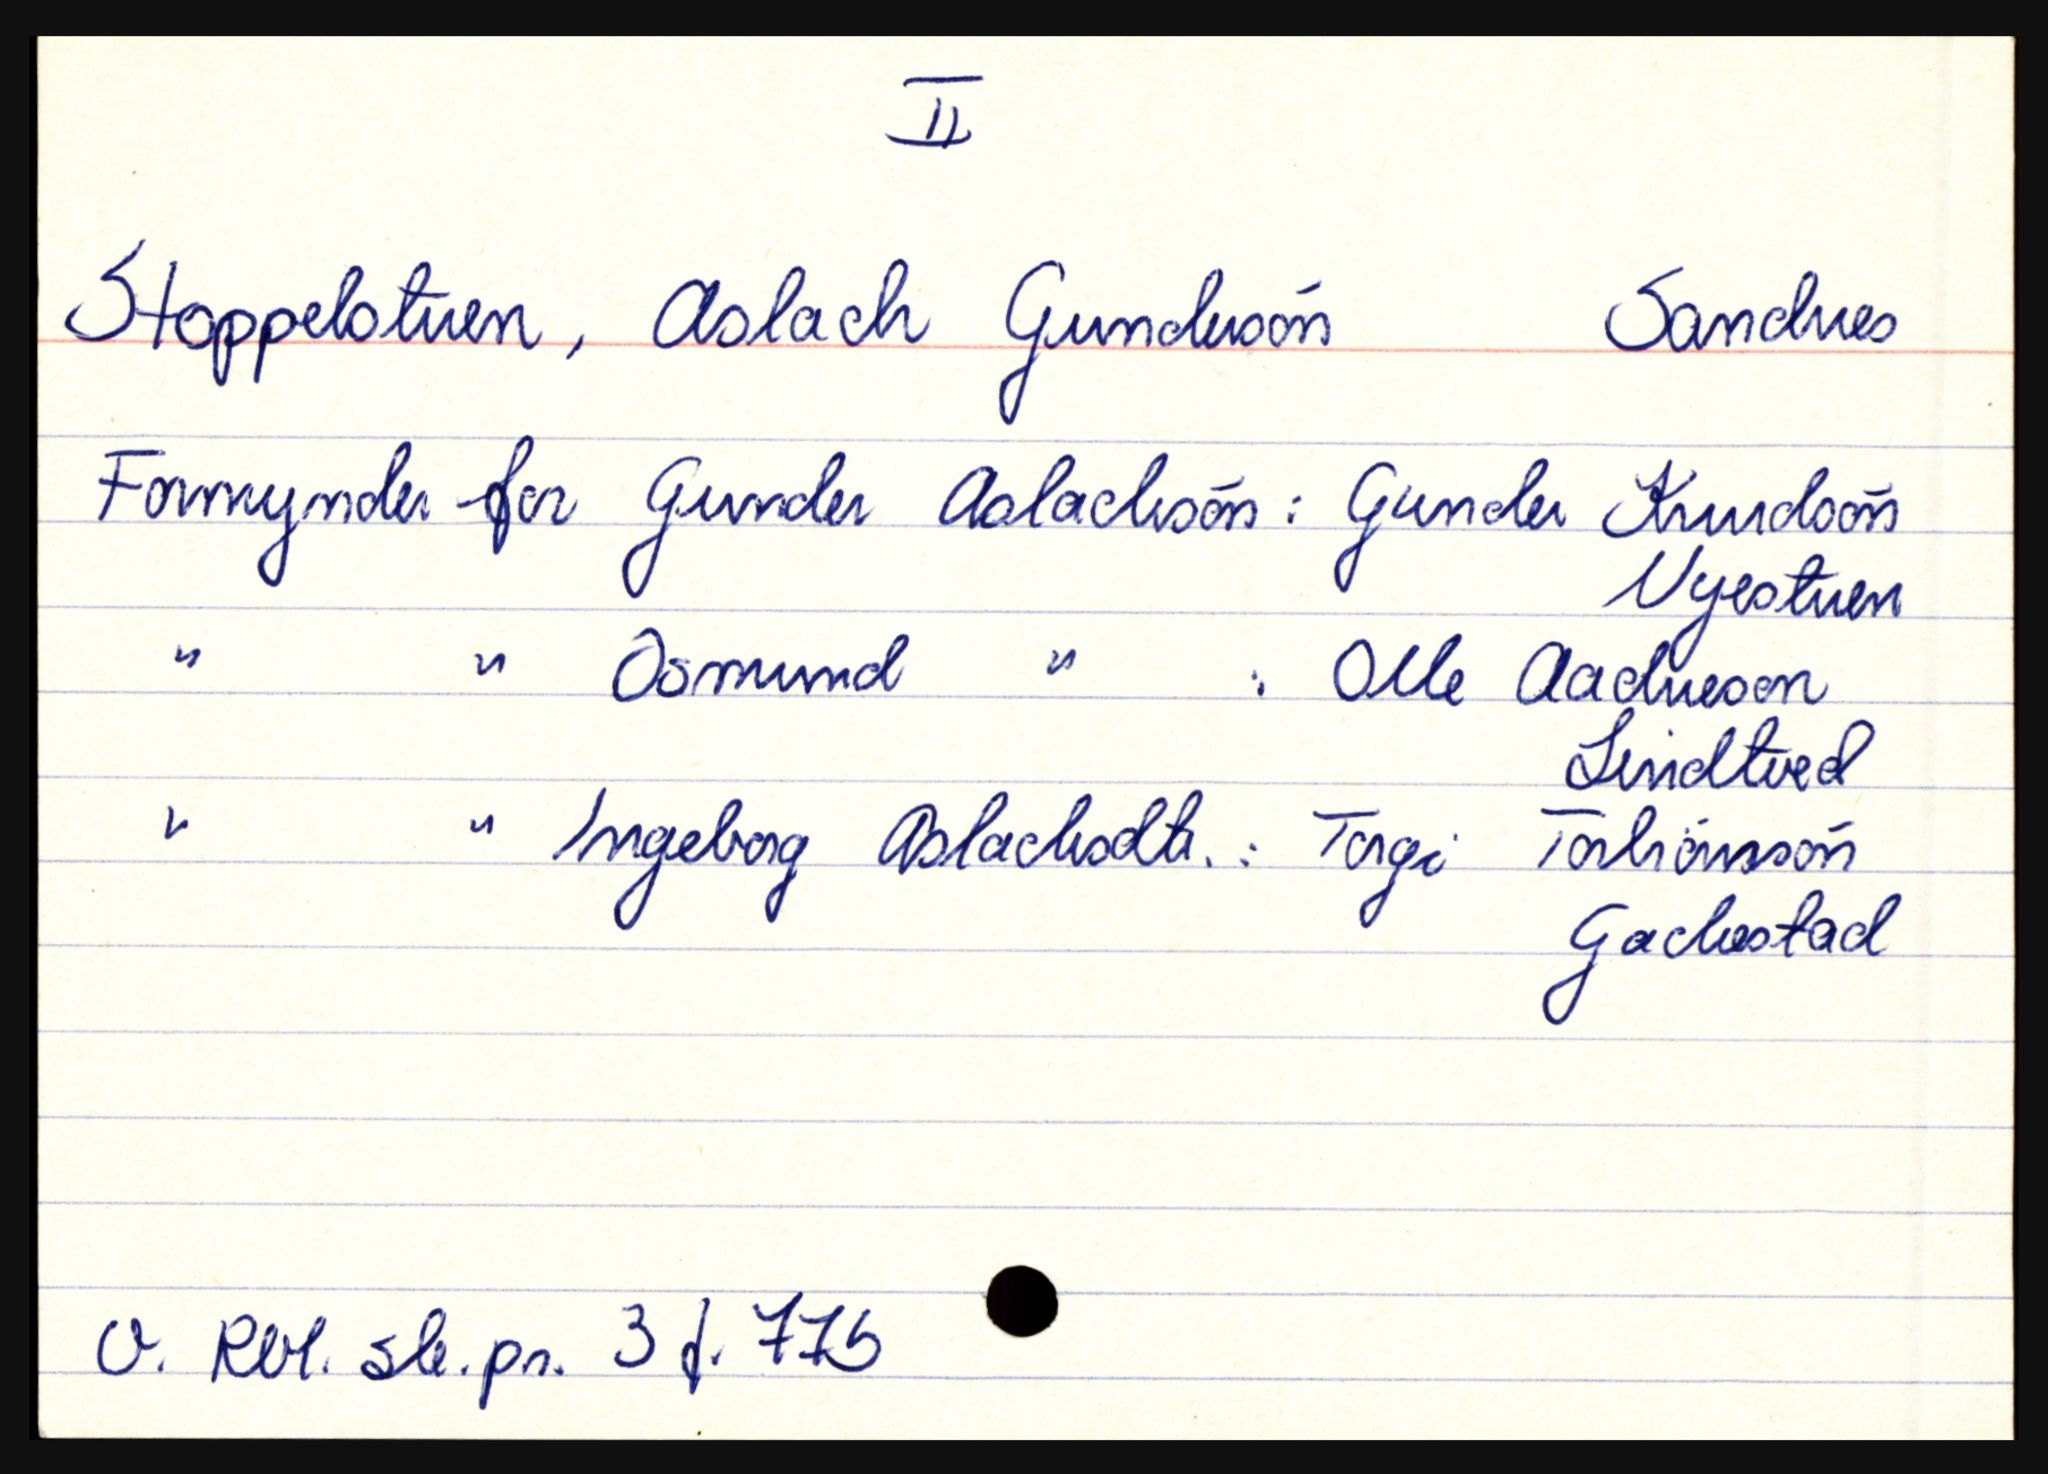 II
Stoppelstuen, Aslach Gundersón Sandnes
Formynder for Gunder Aslachsón : Gunder Knudsón
Nyestuen
" " Osmund " : Olle Aadneson
Lindtved
" " Ingeborg Aslachsdtr. : Torgi Torkiönsón
Gachestad
V. Rbl. sk.pr. 3 f. 77b